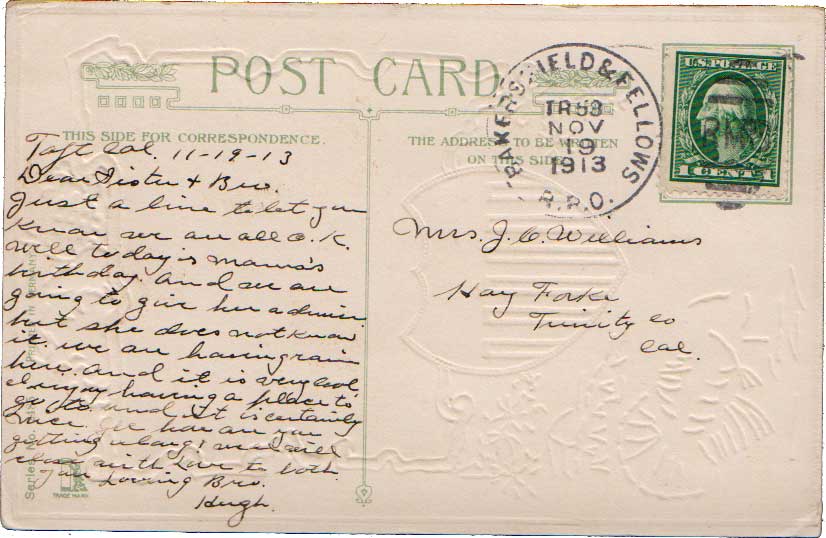 POST CARD
THIS SIDE FOR CORRESPONDENCE.
THE ADDRESS TO BE WRITTEN
ON THIS SIDE
BAKERSFIELD & FELLOWS
TR 53
NOV
19
1913
R.P.O.
U.S. POSTAGE
1 CENTS 1
Taft Cal. 11-19-13
Dear Sister & Bro.
Just a line to let you
know we are all O.K.
well today is mama's
birthday and we are
going to give her a dinner
but she does not know
it. we are having rain
here and it is very cool
I enjoy having a place to
go to and it is certainly
nice. how are you
getting along, well will
close with Love to both
Loving Bro.
Hugh.
Mrs. J. C. Williams
Hay Forke
Trinity co
Cal.
PRINTED IN GERMANY
Series No.
TRADE MARK